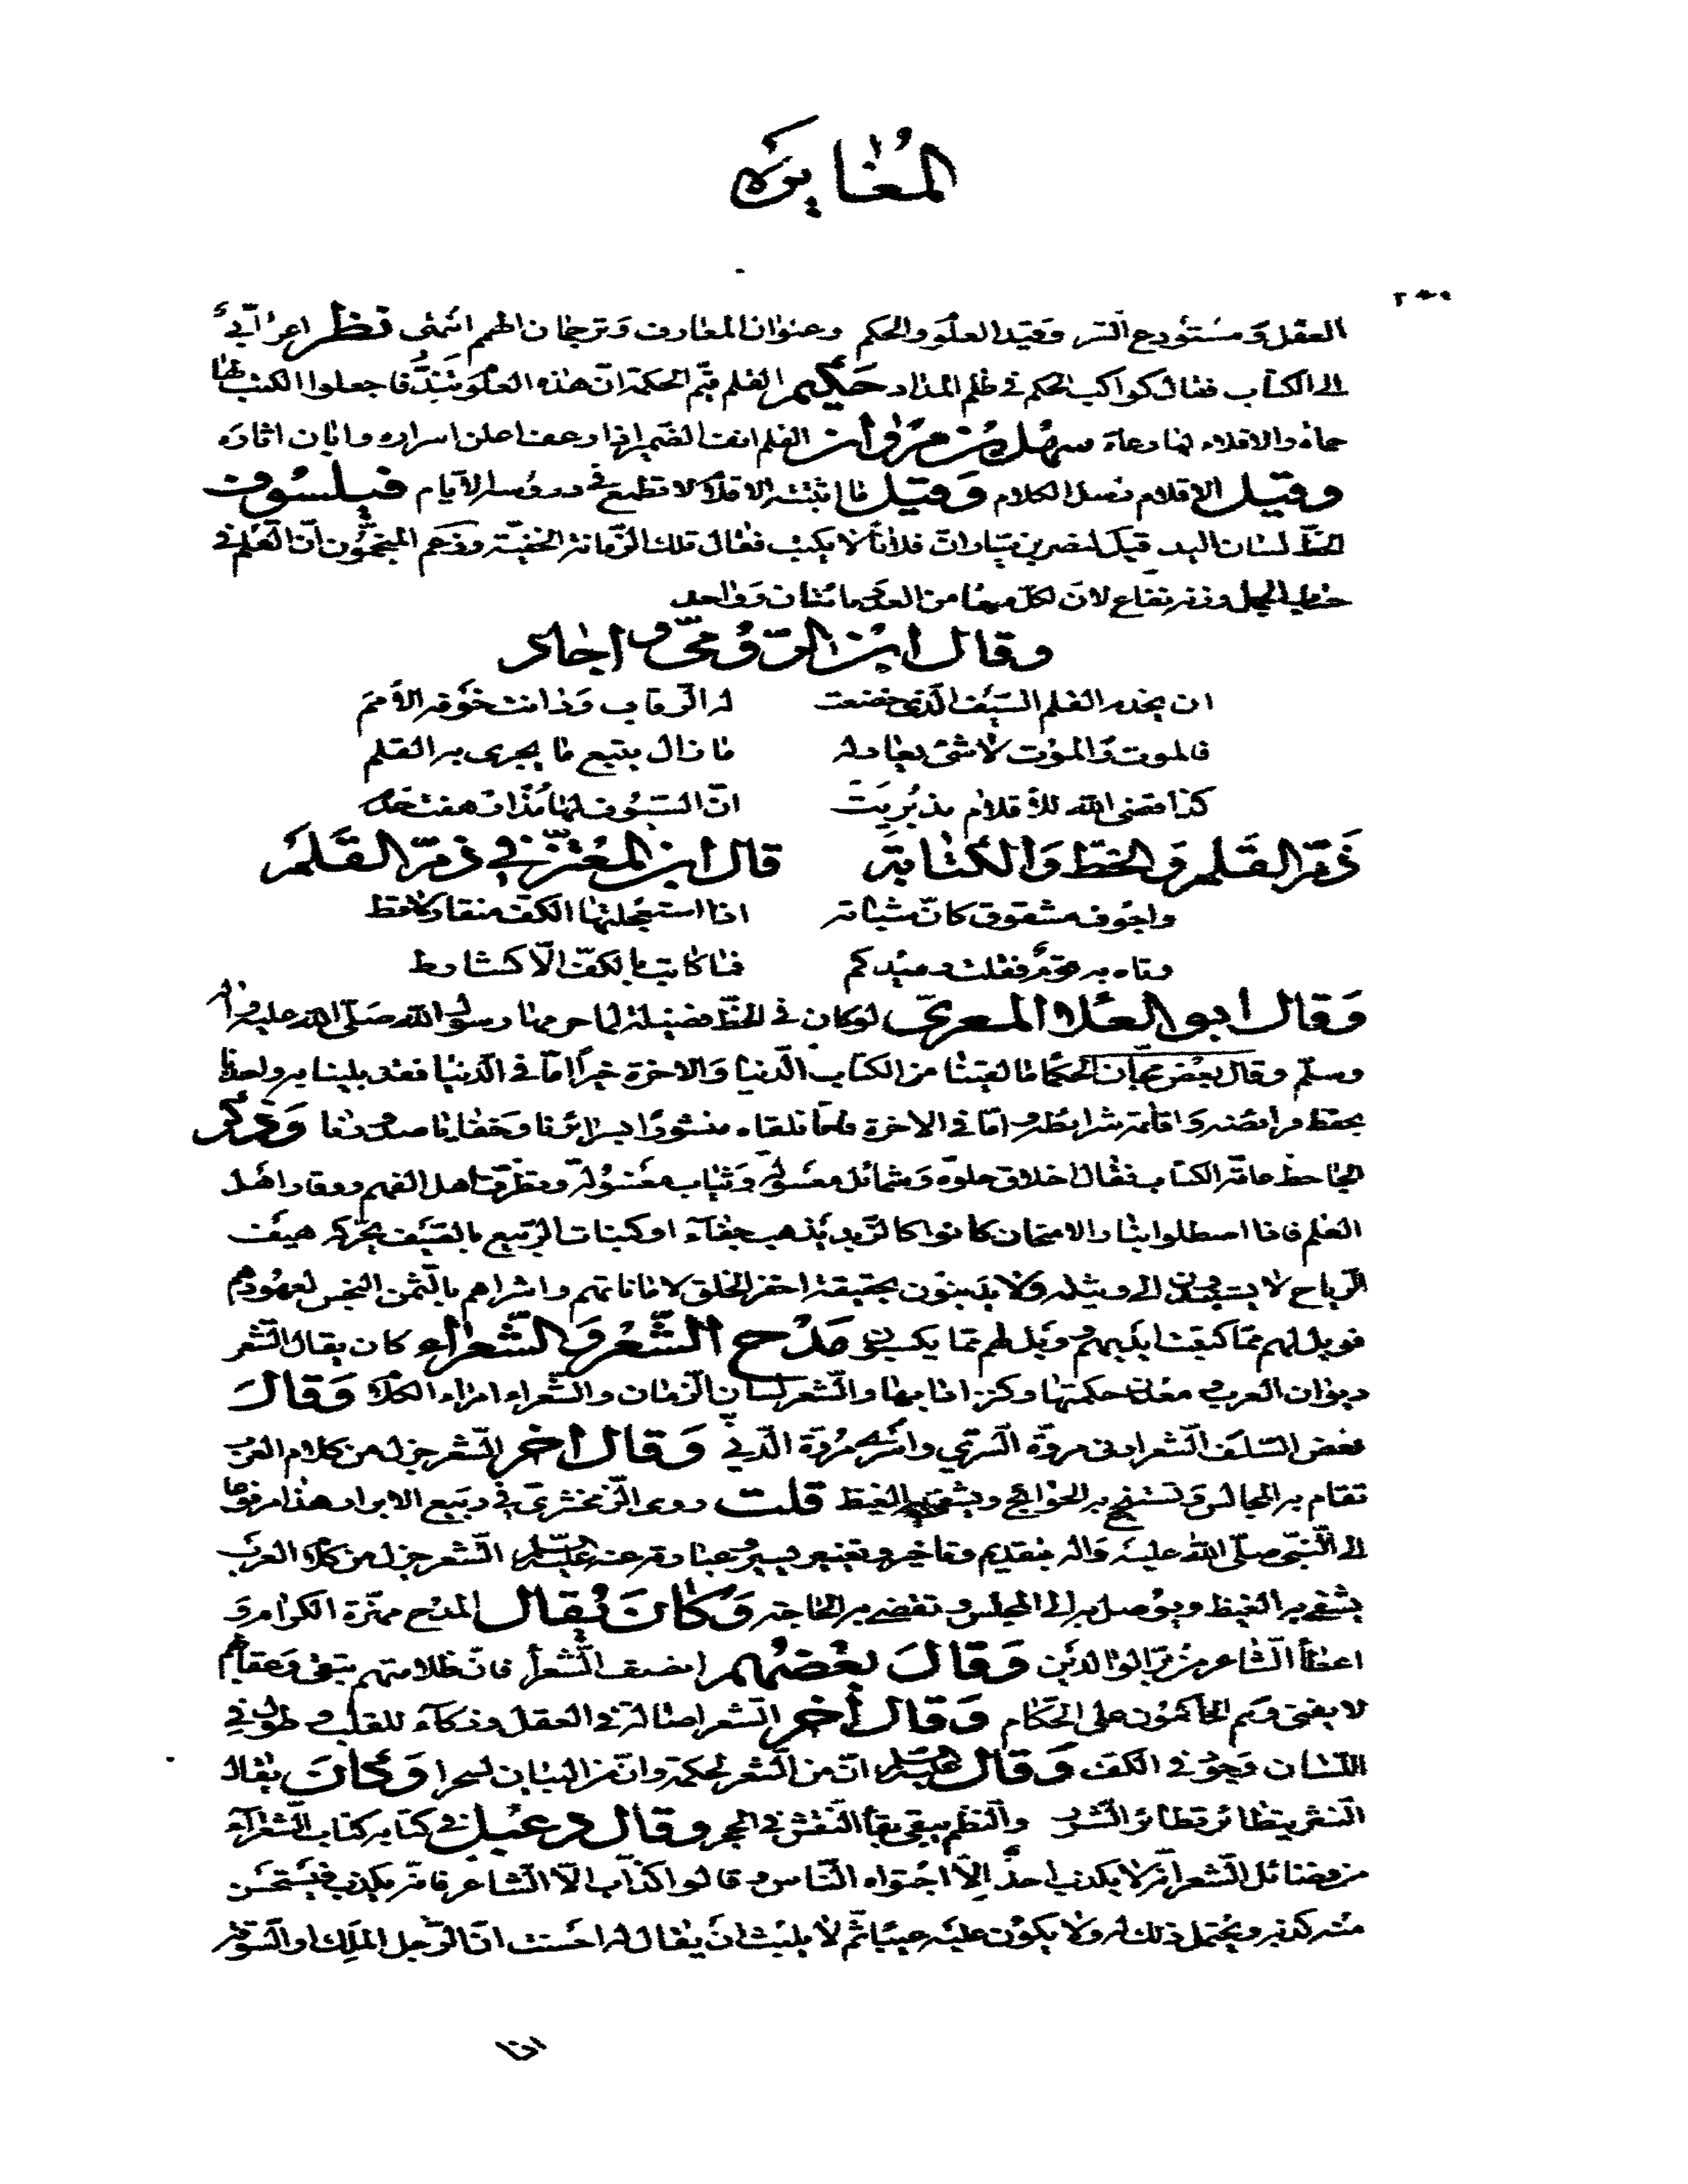 المُغايرَه
العقل وَمستَودع السّر وقيد العلوم والحكم وعنوان المعارف وَترجمان الهمم انتهى نظر اعرابيّ
الى الكتاب فقال كواكب الحكم في ظلم المداد حَكيم القلم قيّم الحكمة انّ هذه العلوم تندُّ فاجعلوا الكتب لها
حماة والاقلام لها رعاة سهل بن مروان القلم انف الضمير اذا رعف اعلن اسراره وابان اثاره
وقيل الاقلام رسل الكلام وَقيل ما اثبتته الاقلام لا تطمع في دروسه الايام فيلسوف
الخطّ لسان اليد قيل لنصر بن سيّار انّ فلاناً لا يكتب فقال تلك الزّمانة الخفيّة وزعم المنجّمون انّ القلم في
وزنه نفاع لانّ لكلّ منهما من العدد مائتان وَواحد
وقال ابن الرّوميّ واجاد
ان يخدم القلم السّيف الّذي خضعت له الرّقاب وَدانت خَوفه الأمم
فالموت وَالموت لا شيء يعادله ما زال يتبع ما يجري به القلم
كذا قضى الله للأقلام مذ بُريَت انّ السّيوف لها مذ ارهفت خدم
ذَمّ القَلم وَالخطّ وَالكتابة قال ابن المُعتزّ في ذمّ القَلم
واجوف مشقوق كانّ شباته اذا استعجلتها الكفّ منقار لاقط
وتاه به قومٌ فقلت رويدكم فما كاتب بالكفّ الّا كشارط
وَقال ابو العَلا المعريّ لو كان في الخطّ فضيلة لما حرمها رسول الله صَلّى الله عليه وآله
وسلّم وقال بعض مجّان الحكما ما لقيتنا من الكتاب الدّنيا وَالاخرة خيراً امّا في الدّنيا فقد بلينا به واخذنا
بحفظ فرايضه وَاقامة شرائطه وامّا في الاخرة فلمّا نلقاه منشورا بسرائرنا وَخفايا صدورنا وَذكر
الجاحظ عامّة الكتاب فقال اخلاق حلوه وَشمائل معسولة وَثياب مغسولة وتظرّف اهل الفهم ووقار اهل
العلم فاذا اصطلوا بنار الامتحان كانوا كالزّبد يَذهب جفآء او كنبات الرّبيع بالصّيف يحرّكه هيف
الرّياح لا يستندون الى وثيقة وَلا يدينون بحقيقة احقر الخلق لاماناتهم واشراهم بالثّمن البخس لعهودهم
فويل لهم ممّا كتبت ايديهم وَويل لهم ممّا يكسبون مَدح الشّعر وَالشّعراء كان يقال الشّعر
ديوان العرب ومعدن حكمتها وكنز ادابها والشّعر لسان الزّمان والشّعراء امراء الكلام وَقالَ
بعض السّلف الشّعر ادنى مروّة السّري واسرى مُروّة الدّني وَقال اخر الشّعر جزل من كلام العرب
تقام به المجالس وَتستنجح به الحوائج ويشفى به الغيظ قلت روى الزّمخشريّ في ربيع الابرار هذا مرفوعا
الى النّبيّ صلّى الله عليه وَاله بتقديم وتاخير وتغيير يسير وعبارته عنه عليه السّلم الشّعر جزل من كلام العرب
يشفى به الغيظ ويوصل به الى المجلس وتقضى به الحاجة وَكانَ يُقال المدح مهزّة الكرام وَ
اعطاء الشّاعر من برّ الوالدَين وَقالَ بَعضهم انصف الشّعراء فانّ ظلامتهم تبقى وَعقابهم
لا يفنى وَهم الحاكمون على الحكّام وَقال أخر الشّعر اصالة في العقل وذكآء للقلب وطول في
اللّسان وَجود في الكفّ وَقال عليه السّلم انّ من الشّعر لحكمة وانّ من البيان لسحرا وَكانَ يقال
النثر يتطاير تطاير الشّرر والنّظم يبقى بقاء النّقش في الحجر وقال دعبل في كتابه كتاب الشّعرآء
من فضائل الشّعر انّه لا يكذب احدٌ الّا اجتواه النّاس وقالوا كذّاب الّا الشّاعر فانّه يكذب فيُستحسَن
منه كذبه ويحتمل ذلك له ولا يكون عليه عيبا ثم لا يلبث ان يقال له احسنت انّ الرّجل الملِك او السّوقة
اذا